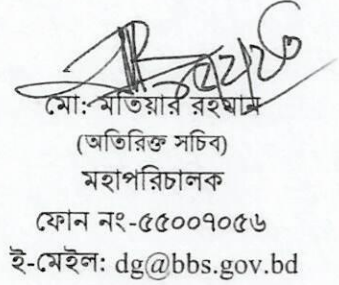 মো: মতিয়ার রহমান
(অতিরিক্ত সচিব)
মহাপরিচালক
ফোন নং-৫৫০০৭০৫৬
ই-মেইল: dg@bbs.gov.bd